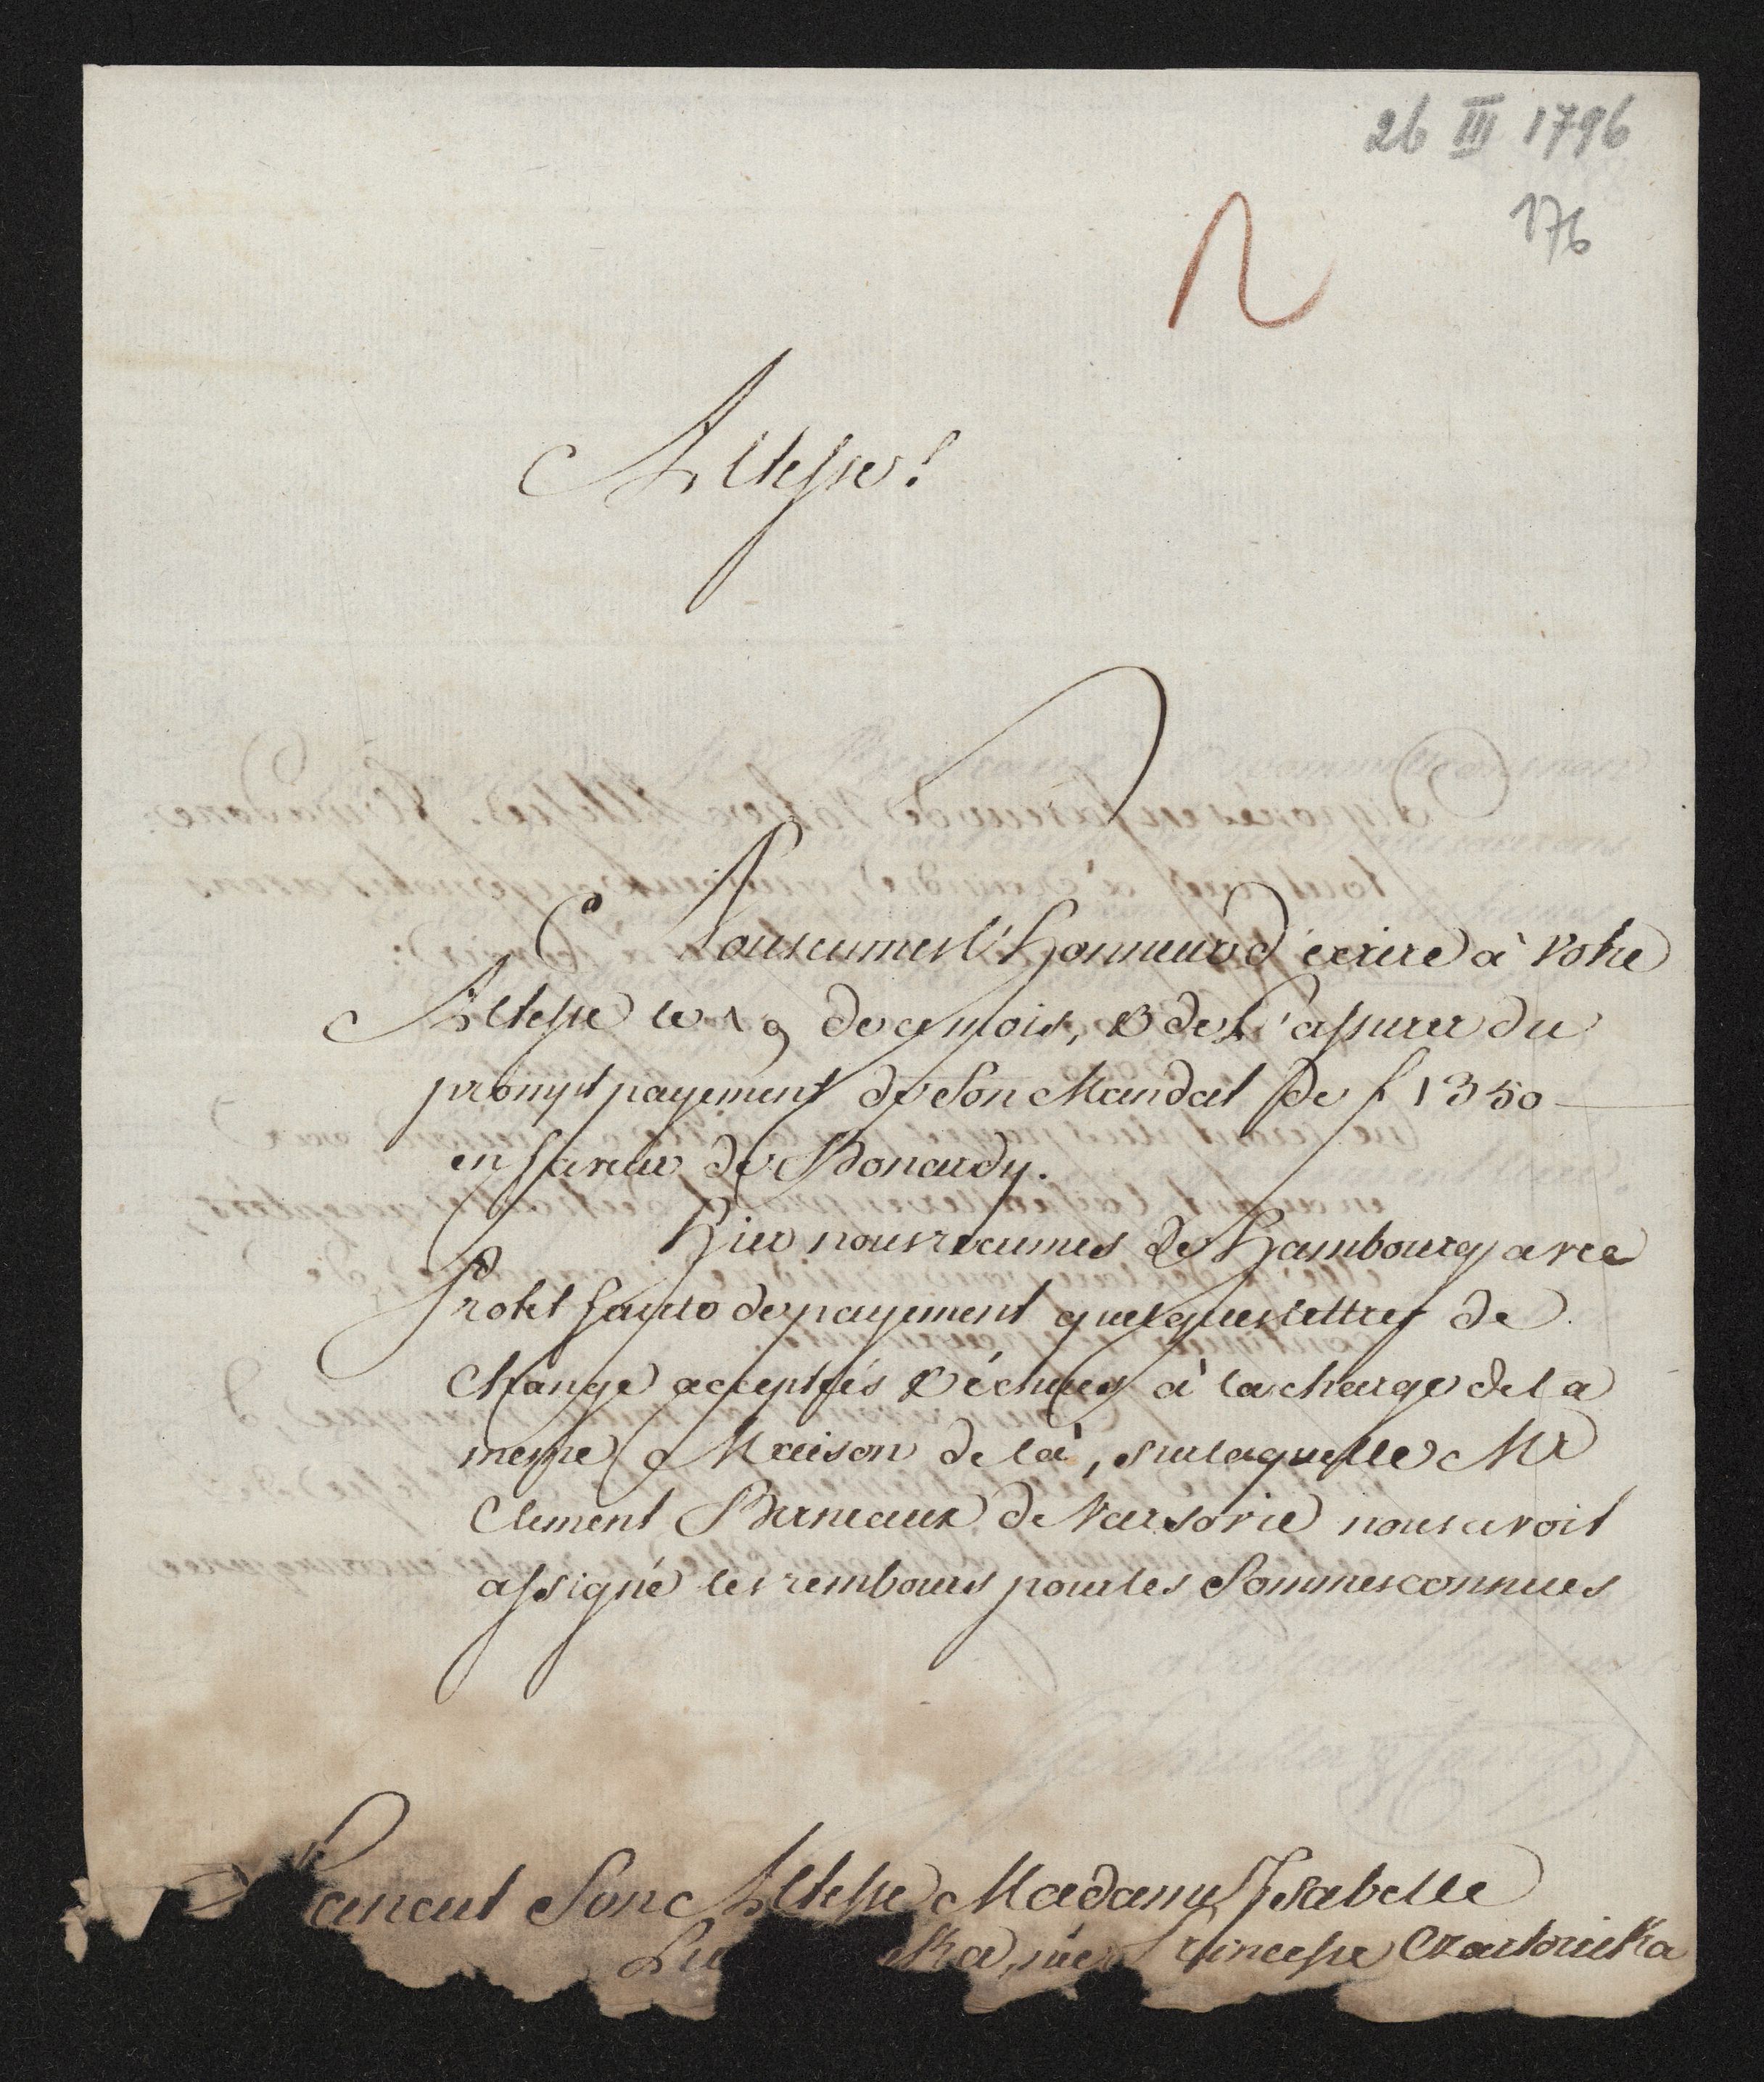 26 III 1796
176
Altesse!
Nous eumes l'honneur d'ecrire à Votre
Altesse le 19 de ce mois, & de L'assurer du
prompt payement de Son Mandat de f 1350
en faveur de Bonardy.
Hier nous recumes de Hambourg avec
Protet faute de payement quelques lettres de
Change acceptés & échues à la charge de la
meme Maison de là, sur laquelle Mr
Clement Bernaux de Varsovie nous avoit
assigné les rembours pour les Sommes connues
Son Altesse Madame Isabelle
Lu ska, née Princesse Czartoriska